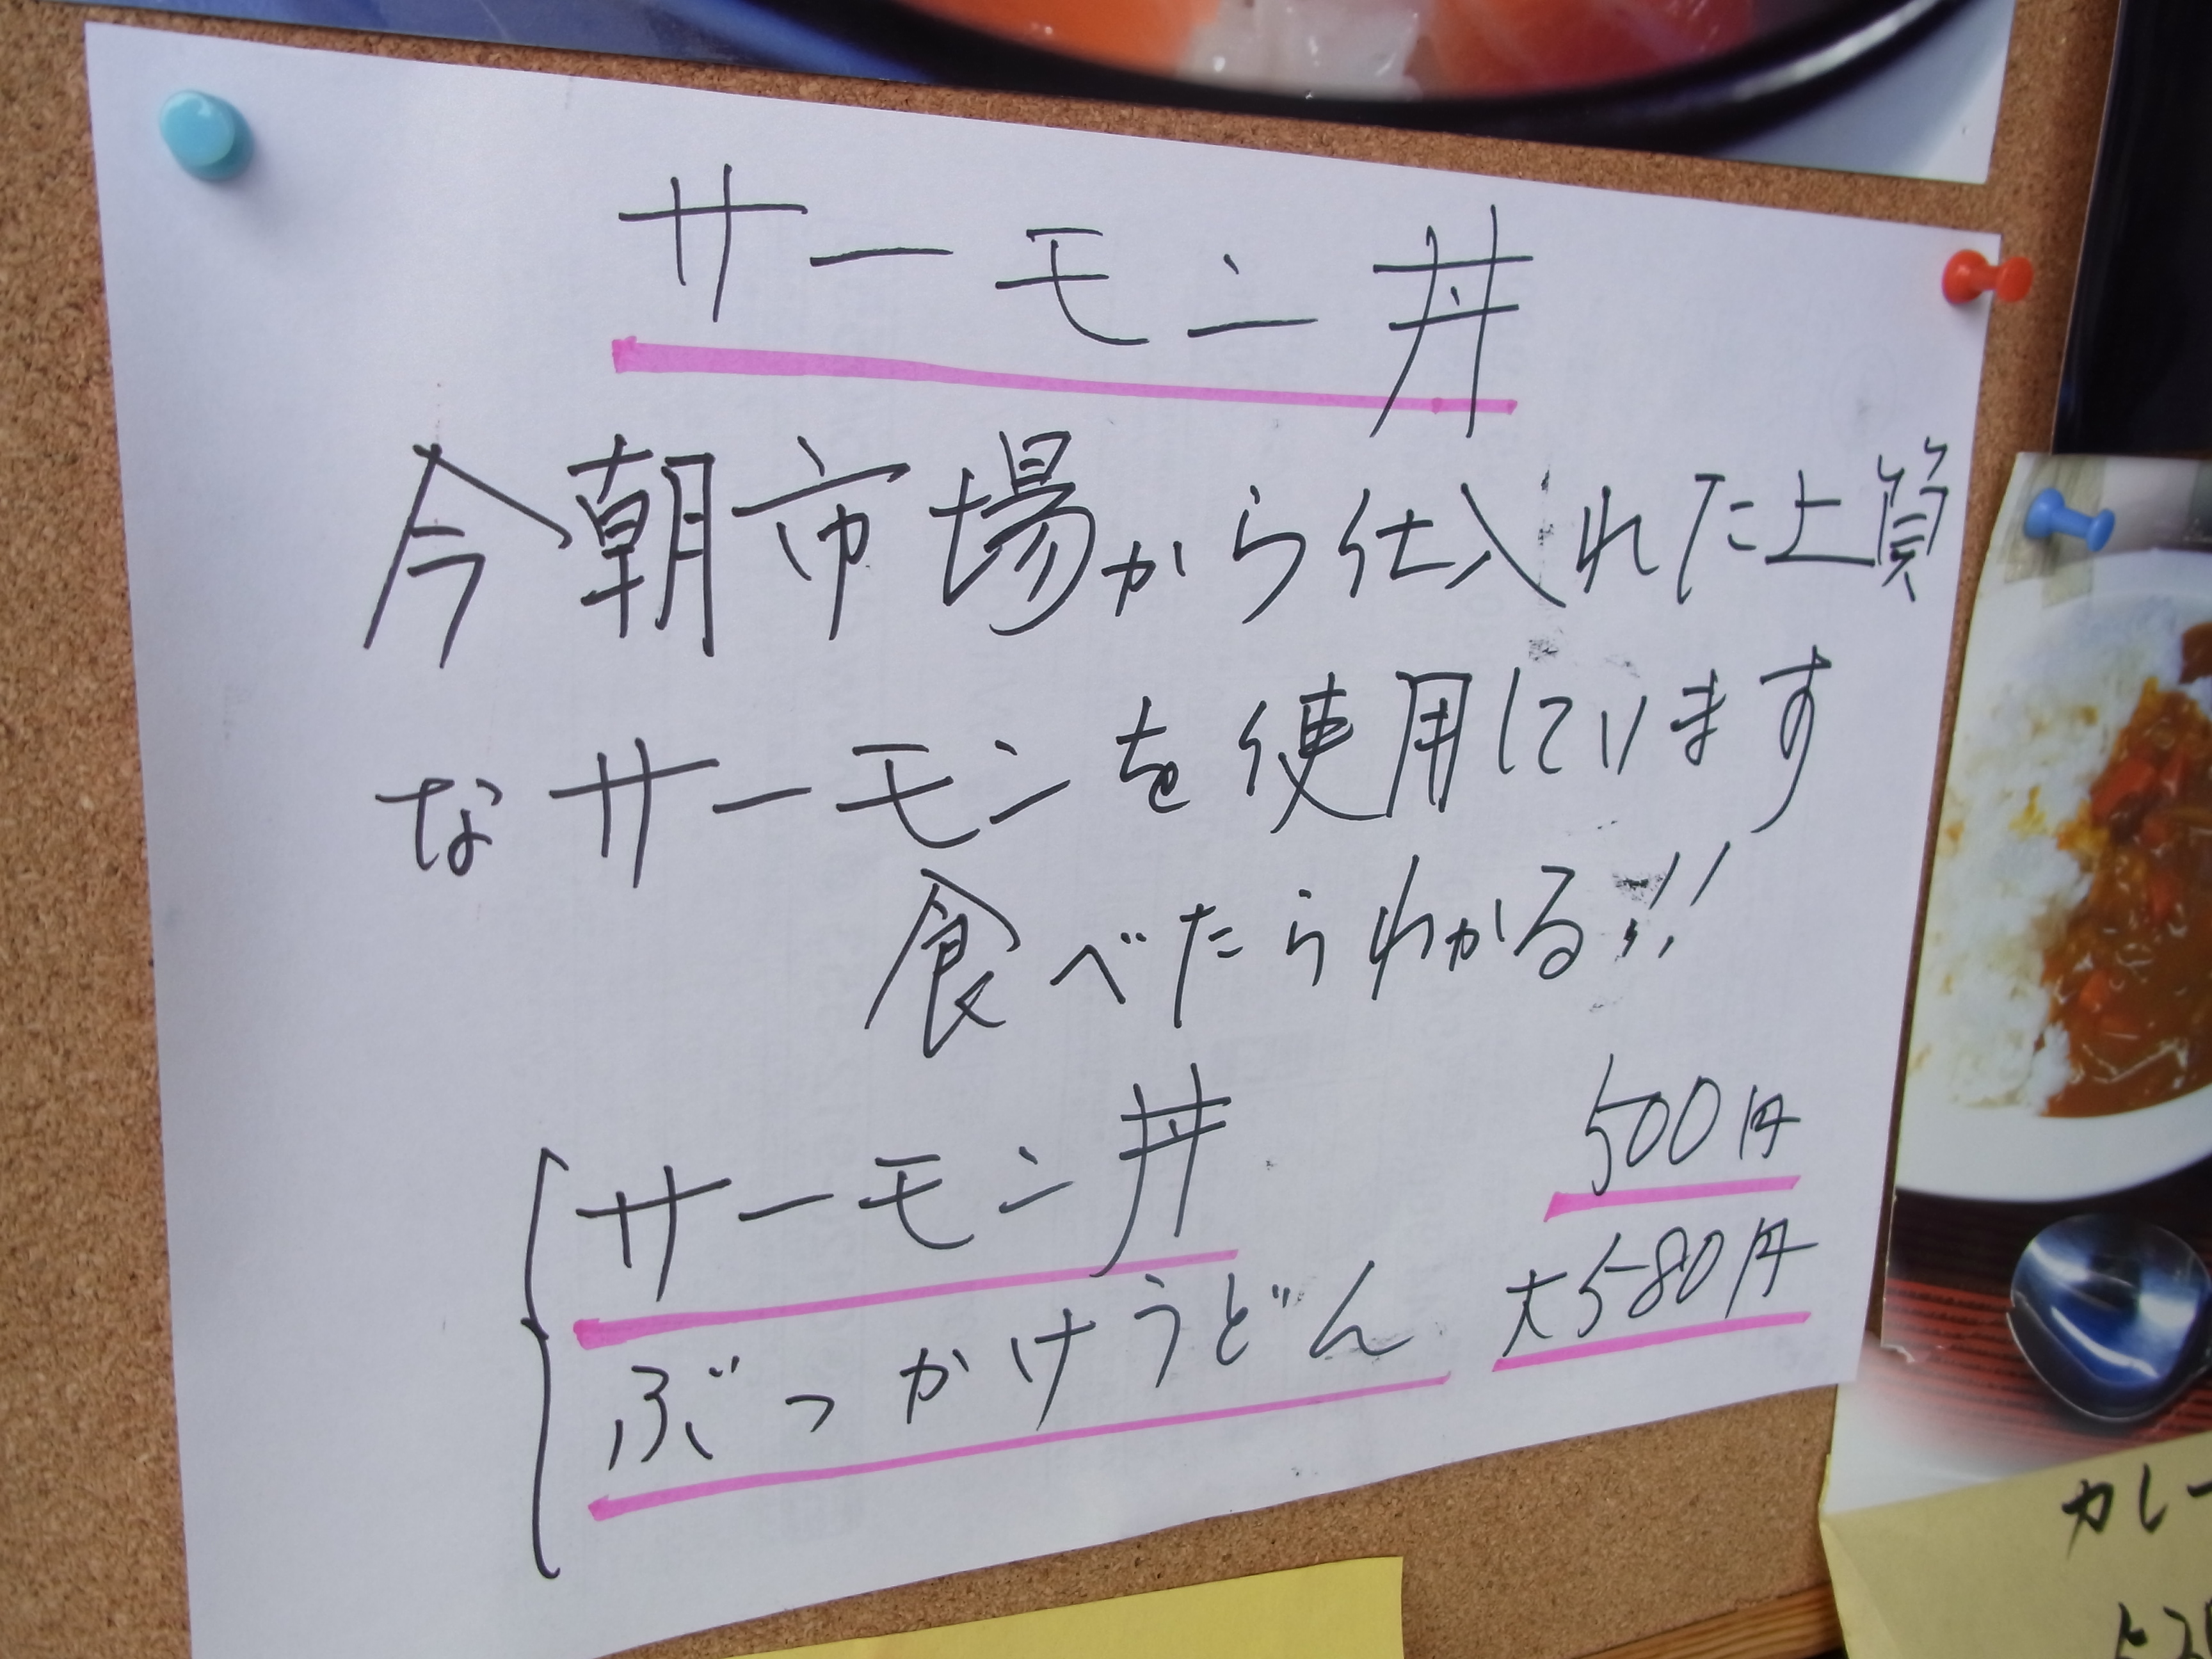 サーモン丼
今朝市場から仕入れた上質
なサーモンを使用しています
食べたらわかる!!
サーモン丼 500円
ぶっかけうどん 大580円
カレー